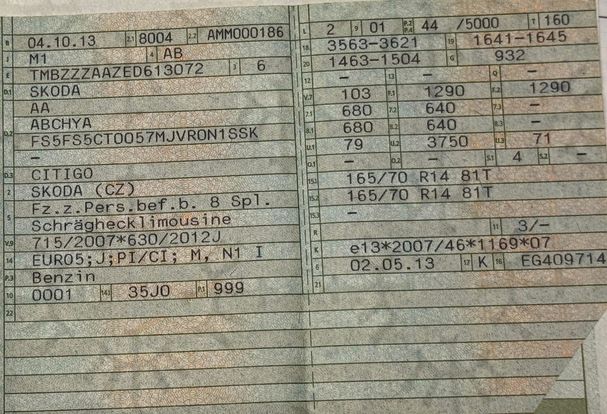 B 04.10.13 2.1 8004 2.2 AMM000186
J M1 4 AB
E TMBZZZAAZED613072 3 6
D.1 SKODA
AA
D.2 ABCHYA
FS5FS5CT0057MJVR0N1SSK
–
D.3 CITIGO
2 SKODA (CZ)
5 Fz.z.Pers.bef.b. 8 Spl.
Schräghecklimousine
V.9 715/2007*630/2012J
14 EURO5;J;PI/CI; M, N1 I
P.3 Benzin
10 0001 14.1 35J0 P.1 999
22
L 2 9 01 P.2 P.4 44 /5000 T 160
18 3563–3621 19 1641–1645
20 1463–1504 G 932
12 – 13 – Q –
V.7 103 F.1 1290 F.2 1290
7.1 680 7.2 640 7.3 –
8.1 680 8.2 640 8.3 –
U.1 79 U.2 3750 U.3 71
O.1 – O.2 – S.1 4 S.2 –
15.1 165/70 R14 81T
15.2 165/70 R14 81T
15.3 –
R 11 3/–
K e13*2007/46*1169*07
6 02.05.13 17 K 16 EG409714
21